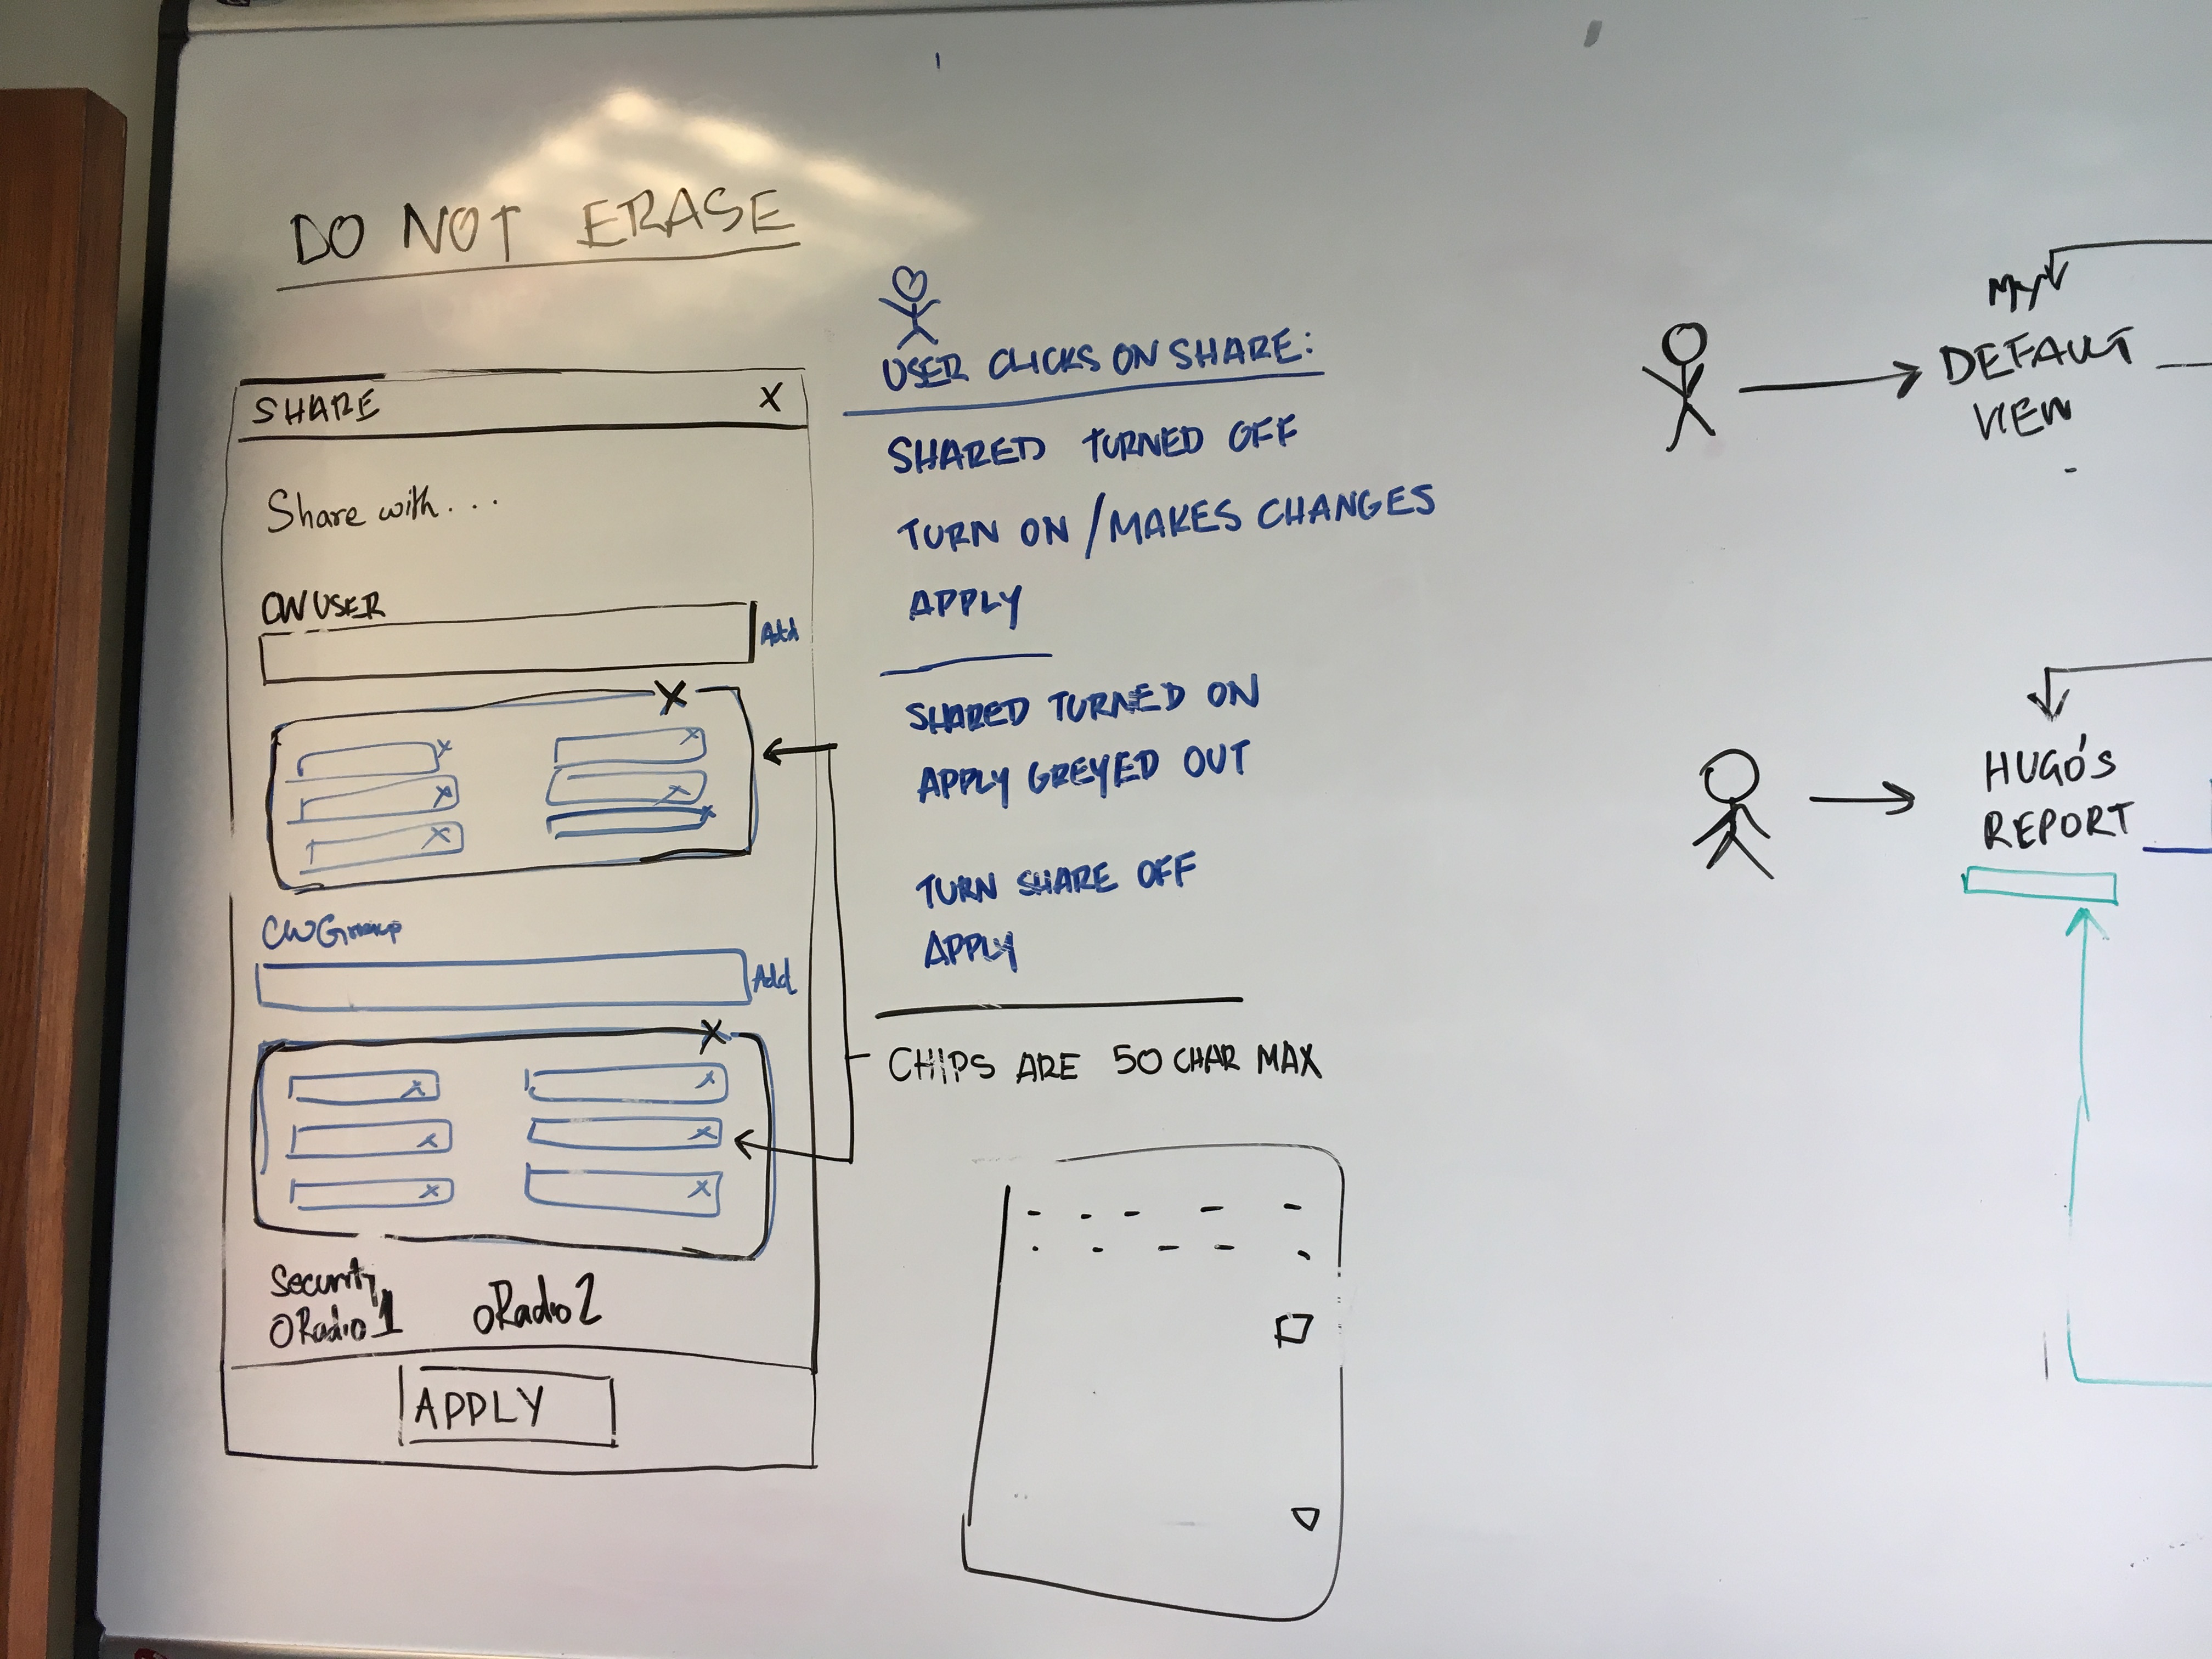 DO NOT ERASE
SHARE X
Share with...
CW USER
Add
X
CW Group
Add
X
Security
Radio 1
Radio 2
APPLY
USER CLICKS ON SHARE:
SHARED TURNED OFF
TURN ON / MAKES CHANGES
APPLY
SHARED TURNED ON
APPLY GREYED OUT
TURN SHARE OFF
APPLY
CHIPS ARE 50 CHAR MAX
MY
DEFAULT
VIEW
HUGO'S
REPORT